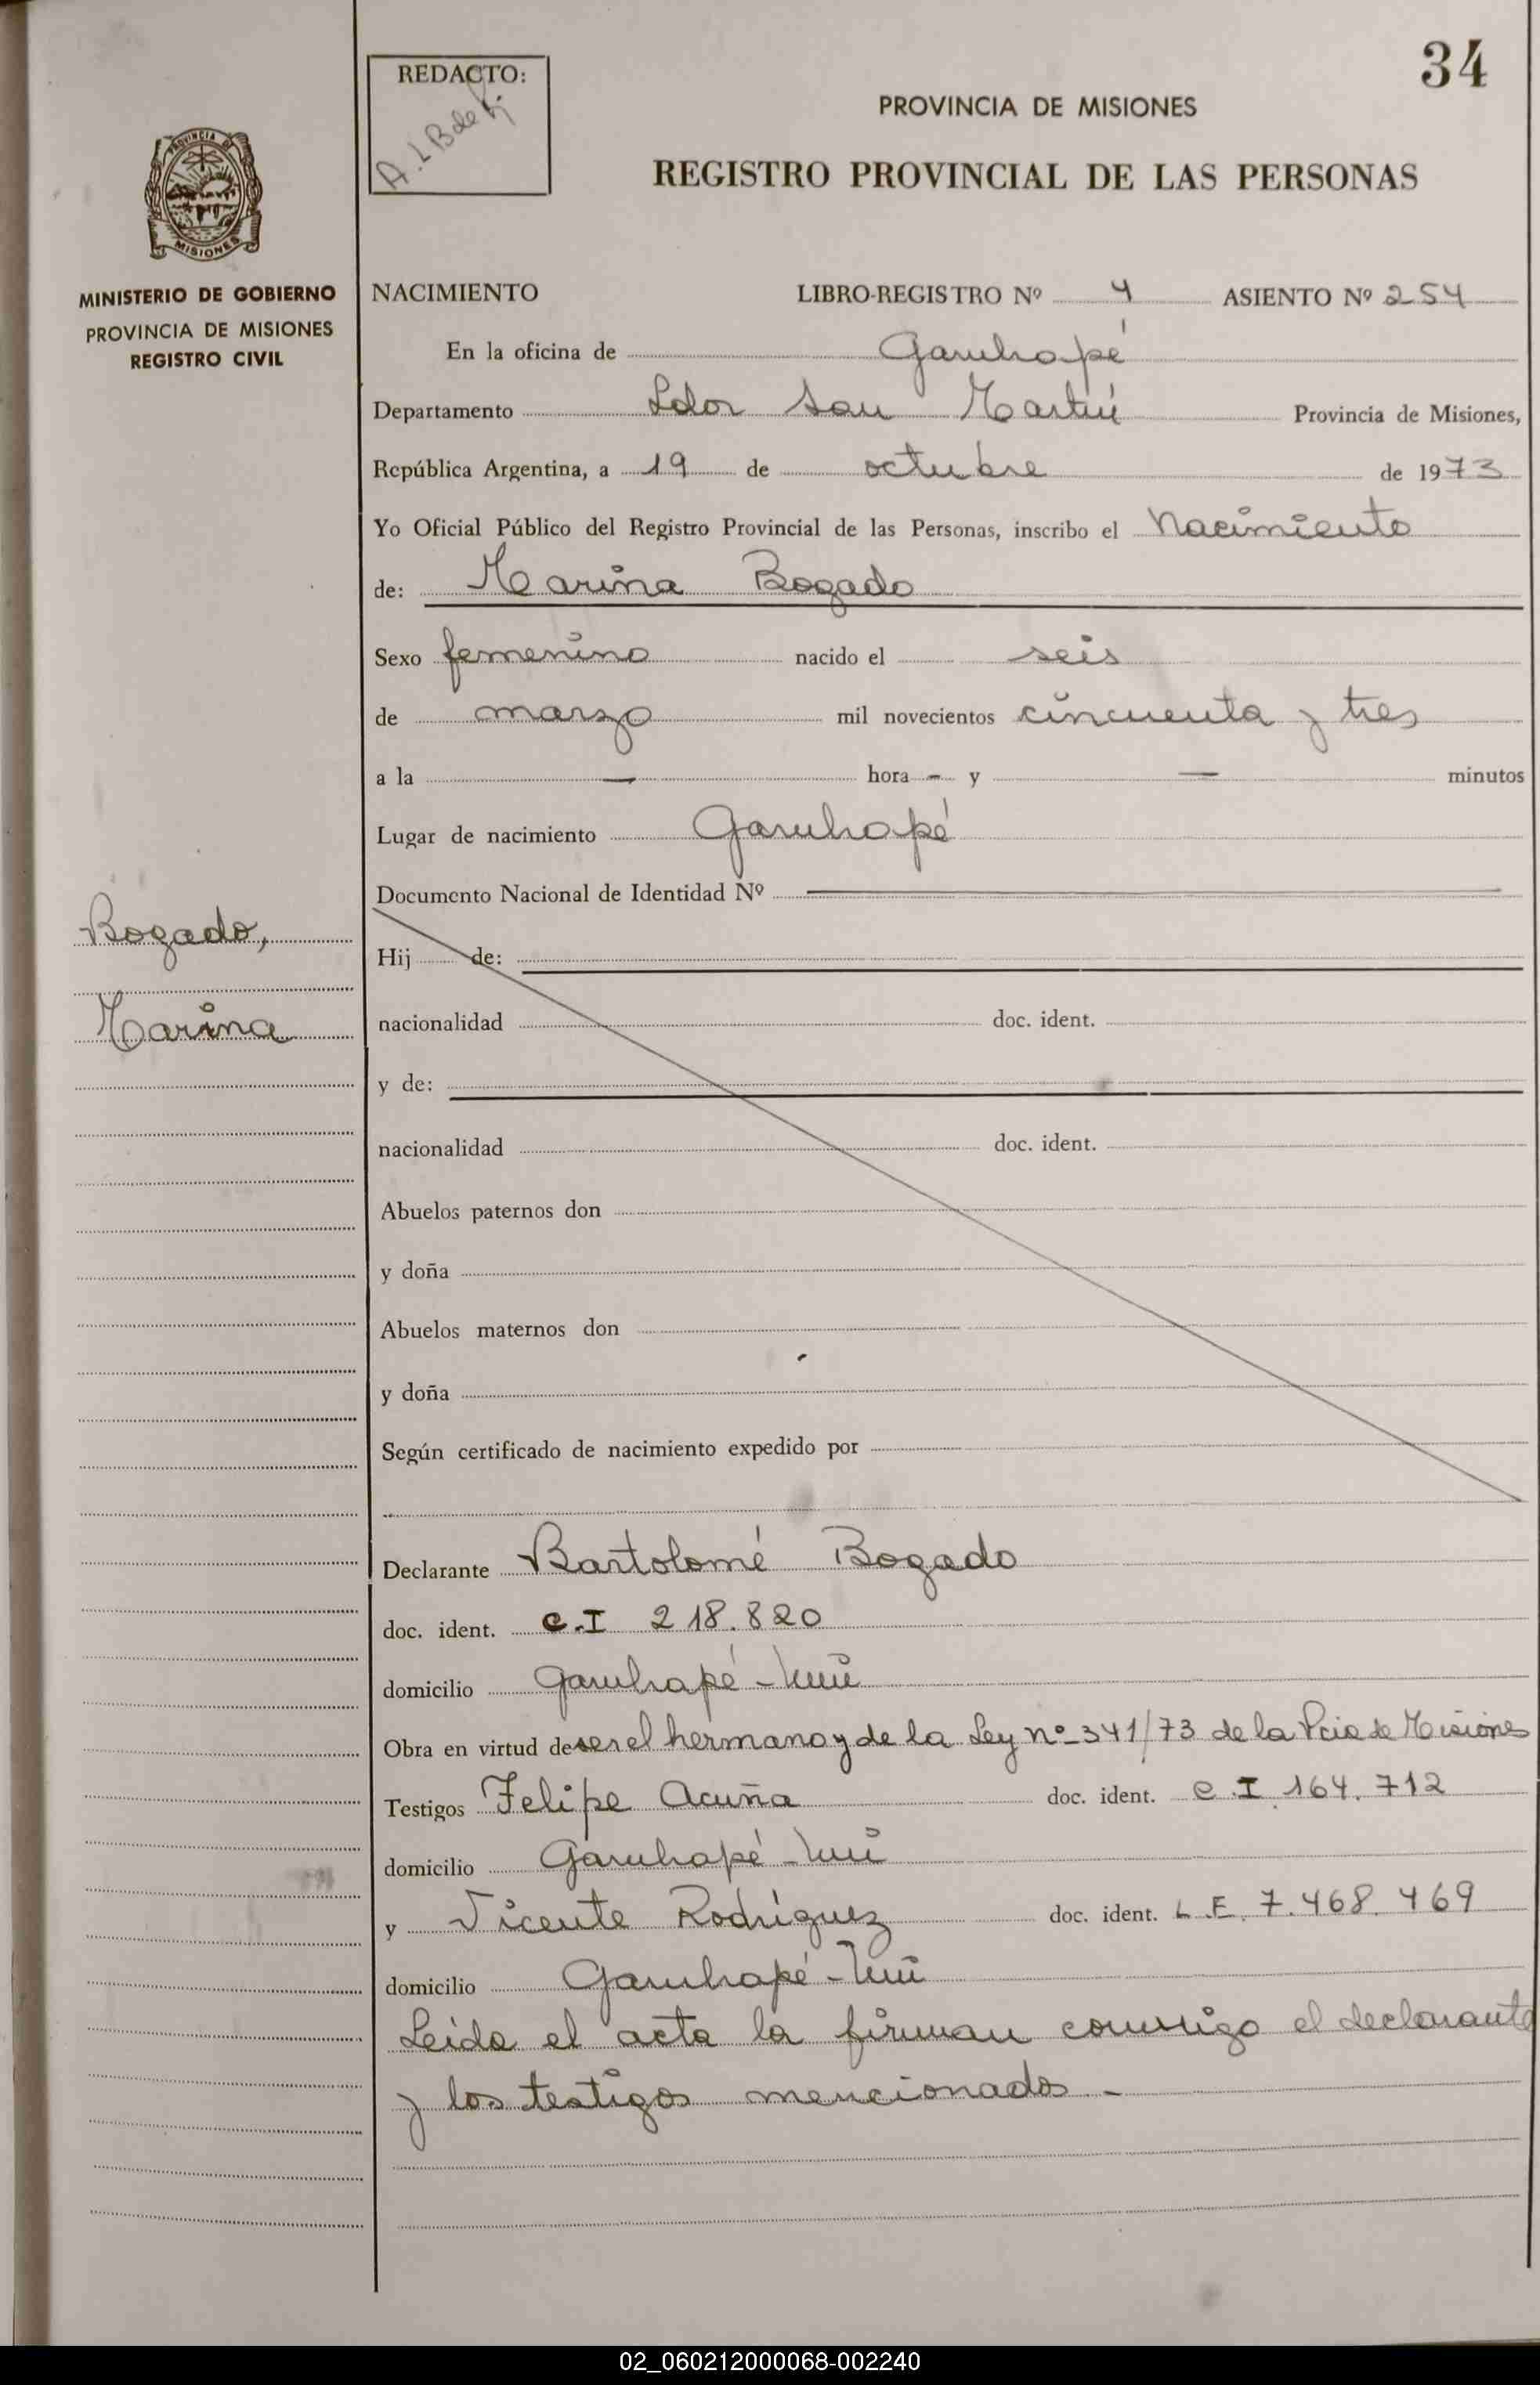 34
REDACTO:
PROVINCIA DE MISIONES
REGISTRO PROVINCIAL DE LAS PERSONAS
PROVINCIA DE
MISIONES
MINISTERIO DE GOBIERNO
PROVINCIA DE MISIONES
REGISTRO CIVIL
NACIMIENTO LIBRO-REGISTRO Nº 4 ASIENTO Nº 254
En la oficina de Garuhapé
Departamento Ldor San Martín Provincia de Misiones,
República Argentina, a 19 de octubre de 1973
Yo Oficial Público del Registro Provincial de las Personas, inscribo el Nacimiento
de: Marina Bogado
Sexo femenino nacido el seis
de marzo mil novecientos cincuenta y tres
a la — hora - y — minutos
Lugar de nacimiento Garuhapé
Documento Nacional de Identidad Nº
Bogado,
Marina
Hij de:
nacionalidad doc. ident.
y de:
nacionalidad doc. ident.
Abuelos paternos don
y doña
Abuelos maternos don
y doña
Según certificado de nacimiento expedido por
Declarante Bartolomé Bogado
doc. ident. C.I 218.820
domicilio Garuhapé-Miní
Obra en virtud de ser el hermano y de la Ley nº 341/73 de la Pcia de Misiones
Testigos Felipe Acuña doc. ident. C.I. 164.712
domicilio Garuhapé-Miní
y Vicente Rodríguez doc. ident. L.E. 7.468.469
domicilio Garuhapé-Miní
Leida el acta la firman conmigo el declarante
y los testigos mencionados -
02_060212000068-002240